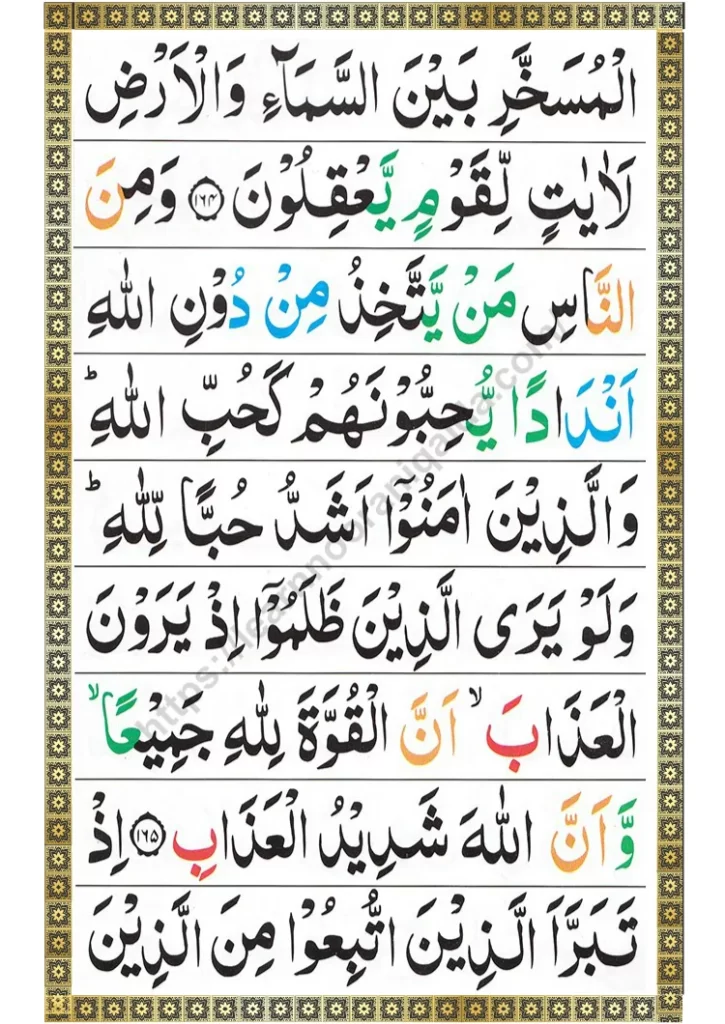 الْمُسَخَّرِ بَيْنَ السَّمَآءِ وَالْاَرْضِ
لَاٰيٰتٍ لِّقَوْمٍ يَّعْقِلُوْنَ ۝۱۶۴ وَمِنَ
النَّاسِ مَنْ يَّتَّخِذُ مِنْ دُوْنِ اللّٰهِ
اَنْدَادًا يُّحِبُّوْنَهُمْ كَحُبِّ اللّٰهِ ؕ
وَالَّذِيْنَ اٰمَنُوْۤا اَشَدُّ حُبًّا لِّلّٰهِ ؕ
وَلَوْ يَرَى الَّذِيْنَ ظَلَمُوْۤا اِذْ يَرَوْنَ
الْعَذَابَ ۙ اَنَّ الْقُوَّةَ لِلّٰهِ جَمِيْعًا ۙ
وَّاَنَّ اللّٰهَ شَدِيْدُ الْعَذَابِ ۝۱۶۵ اِذْ
تَبَرَّاَ الَّذِيْنَ اتُّبِعُوْا مِنَ الَّذِيْنَ